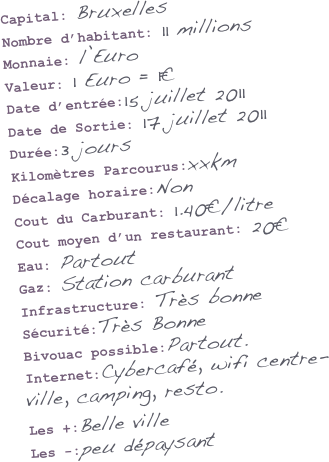 Capital: Bruxelles
Nombre d'habitant: 11 millions
Monnaie: l'Euro
Valeur: 1 Euro = 1€
Date d'entrée:15 juillet 2011
Date de Sortie: 17 juillet 2011
Durée:3 jours
Kilomètres Parcourus:xxkm
Décalage horaire:Non
Cout du Carburant: 1.40€/litre
Cout moyen d'un restaurant: 20€
Eau: Partout
Gaz: Station carburant
Infrastructure: Très bonne
Sécurité:Très Bonne
Bivouac possible:Partout.
Internet:Cybercafé, wifi centre-
ville, camping, resto.
Les +:Belle ville
Les -:peu dépaysant